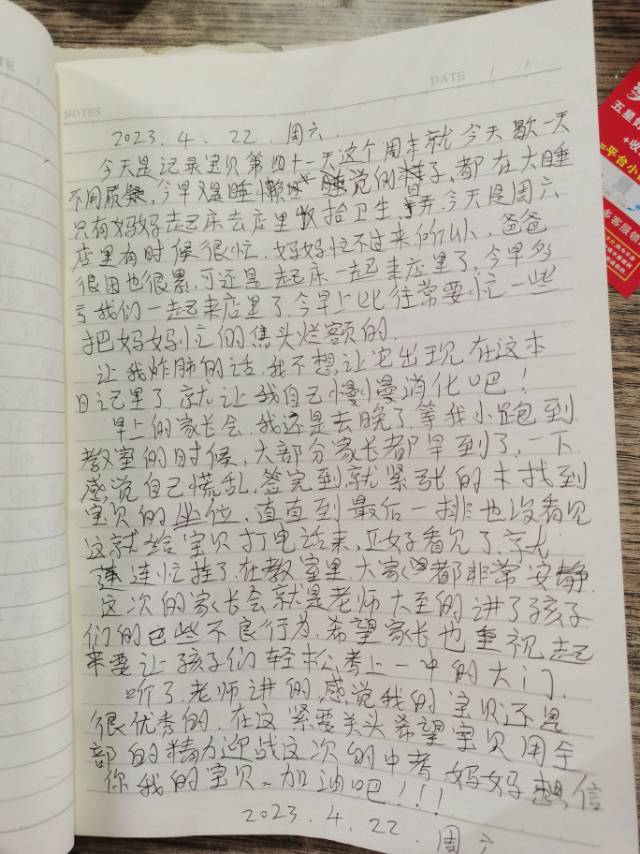 NOTES
DATE
2023.4.22.周六.
今天是记录宝贝第四十一天这个周末就今天歇一天
不用质疑,今早又是睡懒觉睡觉的样子,都在大睡
只有妈妈起起床去店里收拾卫生,今天是周六
店里有时候很忙.妈妈忙不过来的.爸爸
很困也很累.可还是起床一起来店里了.今早多
亏我们一起来店里了.今早上比往常要忙一些
把妈妈忙的焦头烂额的.
让我炸肺的话.我不想让它出现在这本
日记里了.就让我自己慢慢消化吧!
早上的家长会.我还是去晚了.等我小跑到
教室的时候,大部分家长都早到了,一下
感觉自己慌乱.签完到就紧张的去找到
宝贝的坐位,直直到最后一排也没看见
这就给宝贝打电话来,正好看见了.就
连忙挂了.在教室里.大家都非常安静.
这次的家长会就是老师大至的讲了孩子
们的一些不良行为.希望家长也重视起
来要让孩子们轻松,考上一中的大门.
听了老师讲的,感觉我的宝贝还是
很优秀的.在这紧要关头希望宝贝用全
部的精力迎战这次的中考.妈妈想信
你我的宝贝.加油吧!!!
2023.4.22.周六
五星好
平台小
多客服领